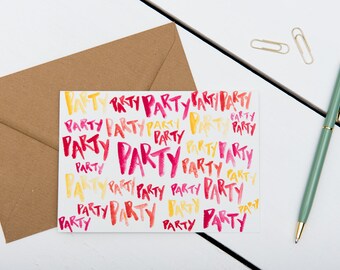 PARTY PARTY PARTY PARTY PARTY
PARTY PARTY PARTY PARTY PARTY
PARTY PARTY
PARTY PARTY PARTY
PARTY PARTY PARTY
PARTY PARTY PARTY PARTY PARTY
PARTY PARTY PARTY PARTY
PARTY PARTY